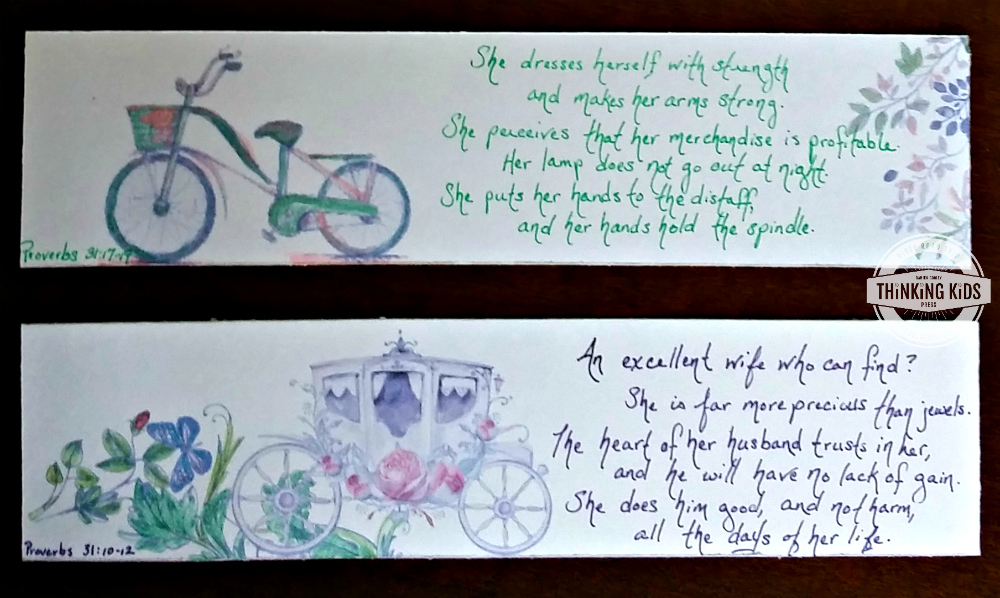 She dresses herself with strength
and makes her arms strong.
She perceives that her merchandise is profitable.
Her lamp does not go out at night.
She puts her hands to the distaff,
and her hands hold the spindle.
Proverbs 31:17-19
THINKING KIDS
PRESS
An excellent wife who can find?
She is far more precious than jewels.
The heart of her husband trusts in her,
and he will have no lack of gain.
She does him good, and not harm,
all the days of her life.
Proverbs 31:10-12